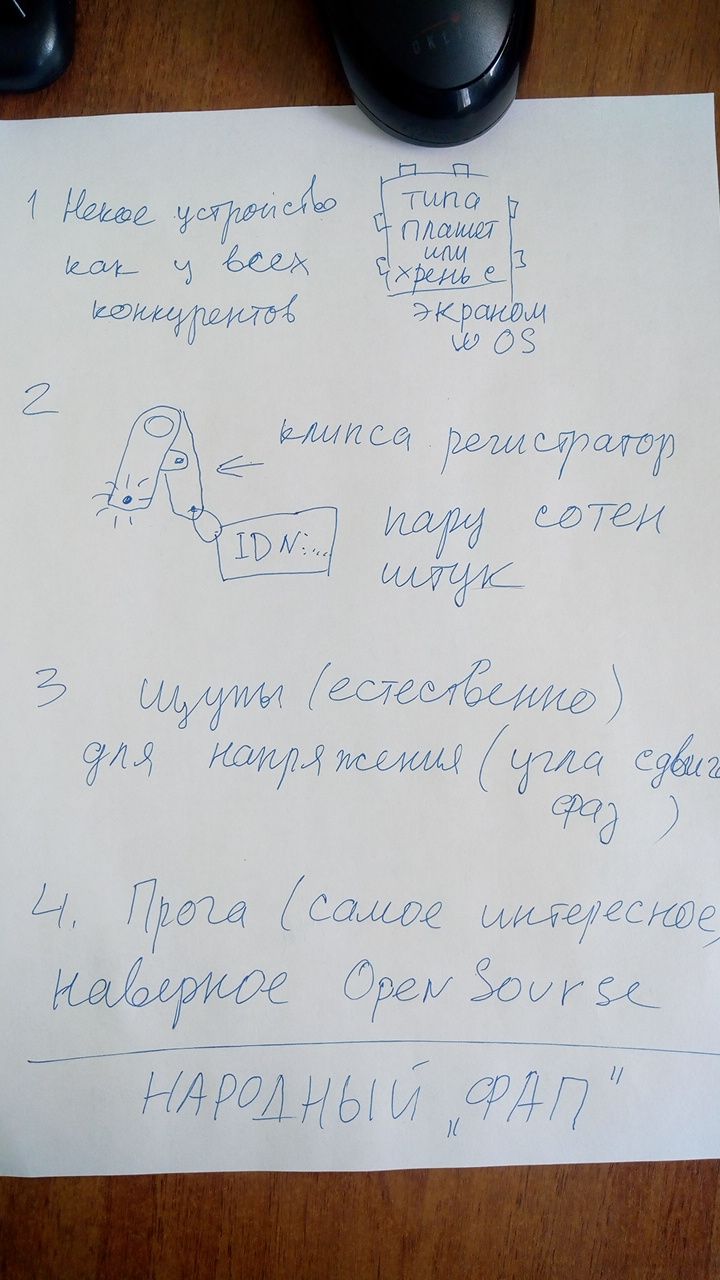 OKLI
1 Некое устройство
как у всех
конкурентов
типа
планшет
или
хрень с
экраном
w OS
2
клипса регистратор
IDN:...
пару сотен
штук
3 щупы (естественно)
для напряжения (угла сдвиг
фаз)
4. Прога (самое интересное,
наверное Open Sourse
НАРОДНЫЙ „ФАП"